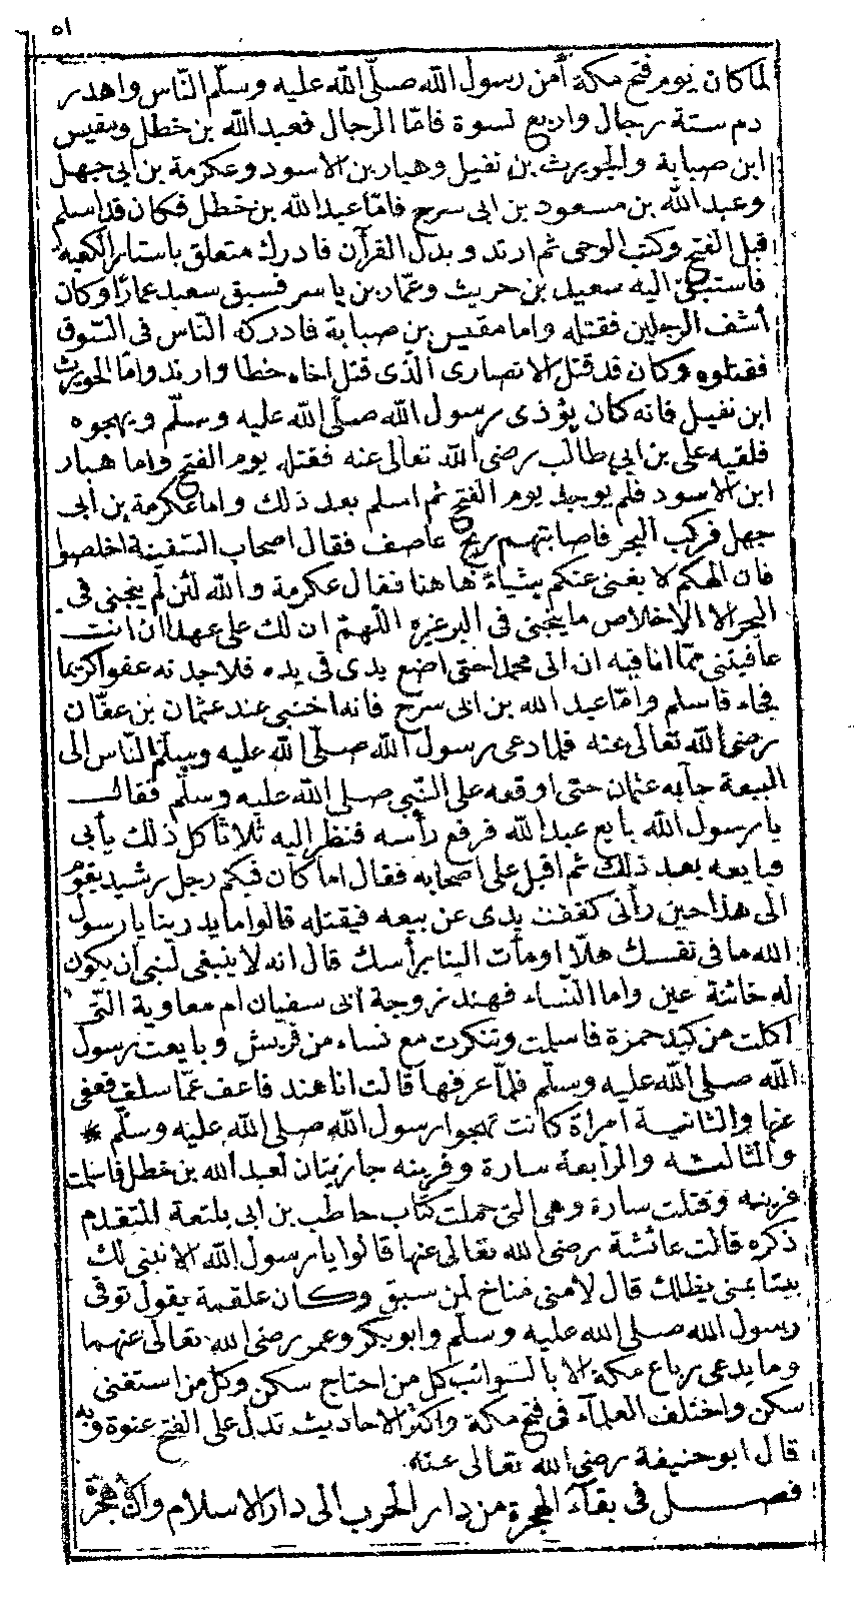 ٥١
لما كان يوم فتح مكة أمن رسول الله صلّى الله عليه وسلّم النّاس واهدر
دم ستة رجال واربع نسوة فامّا الرجال فعبد الله بن خطل ومقيس
ابن صبابة والحويرث بن نفيل وهبار بن الاسود وعكرمة بن ابى جهل
وعبد الله بن مسعود بن ابى سرح فامّا عبد الله بن خطل فكان قد اسلم
قبل الفتح وكتب الوحى ثم ارتد وبدل القرآن فادرك متعلق باستار الكعبه
فاستبق اليه سعيد بن حريث وعمّار بن ياسر فسبق سعيد عمارا وكان
أشف الرجلين فقتله واما مقيس بن صبابة فادركه النّاس فى السّوق
فقتلوه وكان قد قتل الانصارى الّذى قتل اخاه خطا وارتد وامّا الحويرث
ابن نفيل فانه كان يؤذى رسول الله صلّى الله عليه وسلّم ويهجوه
فلقيه على بن ابي طالب رضى الله تعالى عنه فقتله يوم الفتح واما هبار
ابن الاسود فلم يوجد يوم الفتح ثم اسلم بعد ذلك واما عكرمة بن ابى
جهل فركب البحر فاصابتهم ريح عاصف فقال اصحاب السّفينة اخلصوا
فان الهتكم لا يغنى عنكم بشياء هاهنا فقال عكرمة والله لئن لم ينجنى فى
البحر الا الاخلاص ما ينجنى فى البر غيره اللّهمّ ان لك على عهدا ان انت
عافيتنى ممّا انا فيه ان اتى محمدا حتى اضع يدى فى يده فلاجدنه عفوا كريما
فجاء فاسلم وامّا عبد الله بن ابى سرح فانه اختبى عند عثمان بن عفّان
رضى الله تعالى عنه فلما دعى رسول الله صلّى الله عليه وسلّم النّاس الى
البيعة جا به عثمان حتى اوقفه على النّبى صلى الله عليه وسلّم فقال
يا رسول الله بايع عبد الله فرفع رأسه فنظر اليه ثلاثا كل ذلك يأبى
فبايعه بعد ذلك ثم اقبل على اصحابه فقال اما كان فيكم رجل رشيد يقوم
الى هذا حين رأنى كففت يدى عن بيعه فيقتله قالوا ما يدرينا يا رسول
الله ما فى نفسك هلّا اومأت الينا برأسك قال انه لا ينبغى لنبى ان يكون
له خائنة عين واما النّساء فهند زوجة ابى سفيان ام معاوية التّى
اكلت من كبد حمزة فاسلمت وتنكرت مع نساء من قريش وبايعت رسول
الله صلى الله عليه وسلّم فلمّا عرفها قالت انا هند فاعف عمّا سلف فعفى
عنها والثانية امراة كانت تهجوا رسول الله صلى الله عليه وسلّم *
والثالثه والرابعة سارة وقرينه جاريتان لعبد الله بن خطل فاسلمت
قرينه وقتلت سارة وهى التى حملت كتاب حاطب بن ابى بلتعة المتقدم
ذكره قالت عائشة رضى الله تعالى عنها قالوا يا رسول الله الا نبنى لك
بيتا بمنى يظلك قال لا منى مناخ لمن سبق وكان علقمة يقول توفى
رسول الله صلى الله عليه وسلّم وابو بكر وعمر رضى الله تعالى عنهما
وما يدعى رباع مكة الا بالسّوائب كل من احتاج سكن وكل من استغنى
سكن واختلف العلمآء فى فتح مكة واكثر الاحاديث تدل على الفتح عنوة وبه
قال ابو حنيفة رضى الله تعالى عنه
فصل فى بقآء الهجرة من دار الحرب الى دار الاسلام وان هجرة